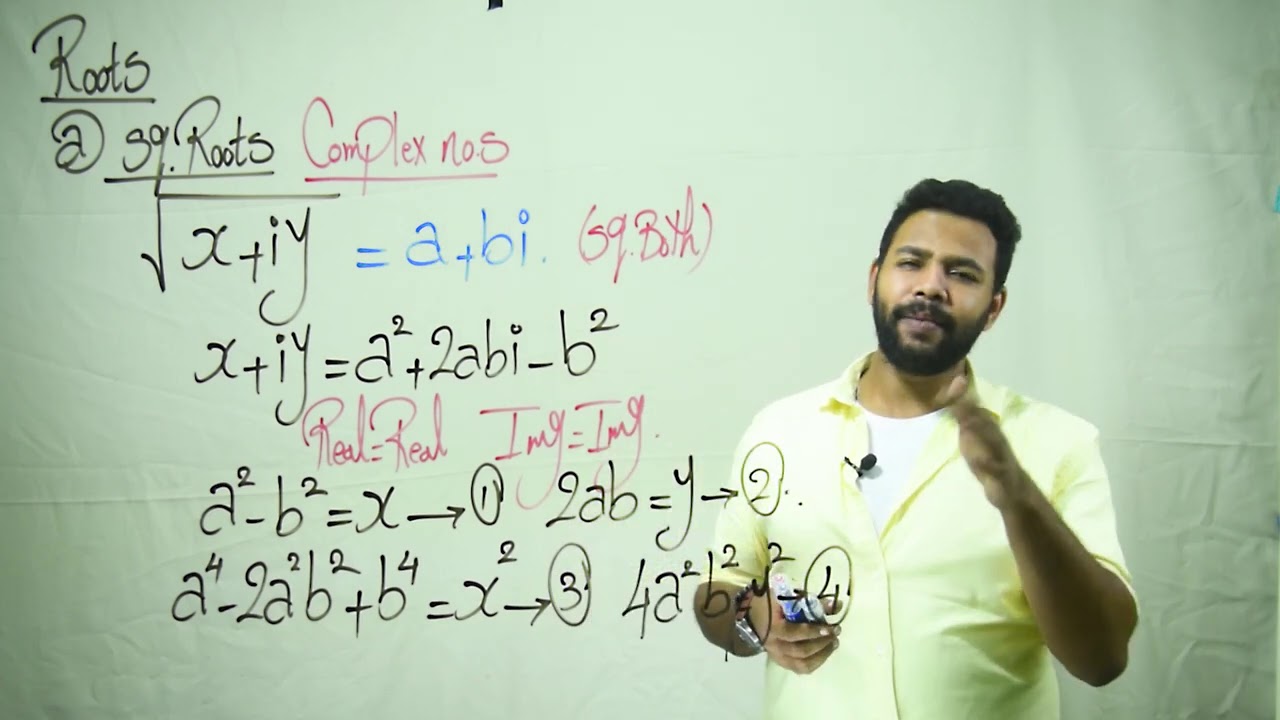 Roots
ⓐ sq. Roots Complex no.s
√x+iy = a+bi. (sq. Both)
x+iy = a²+2abi-b²
Real=Real Img=Img.
a²-b²=x→① 2ab=y→②.
a⁴-2a²b²+b⁴=x²→③ 4a²b²=y²→④